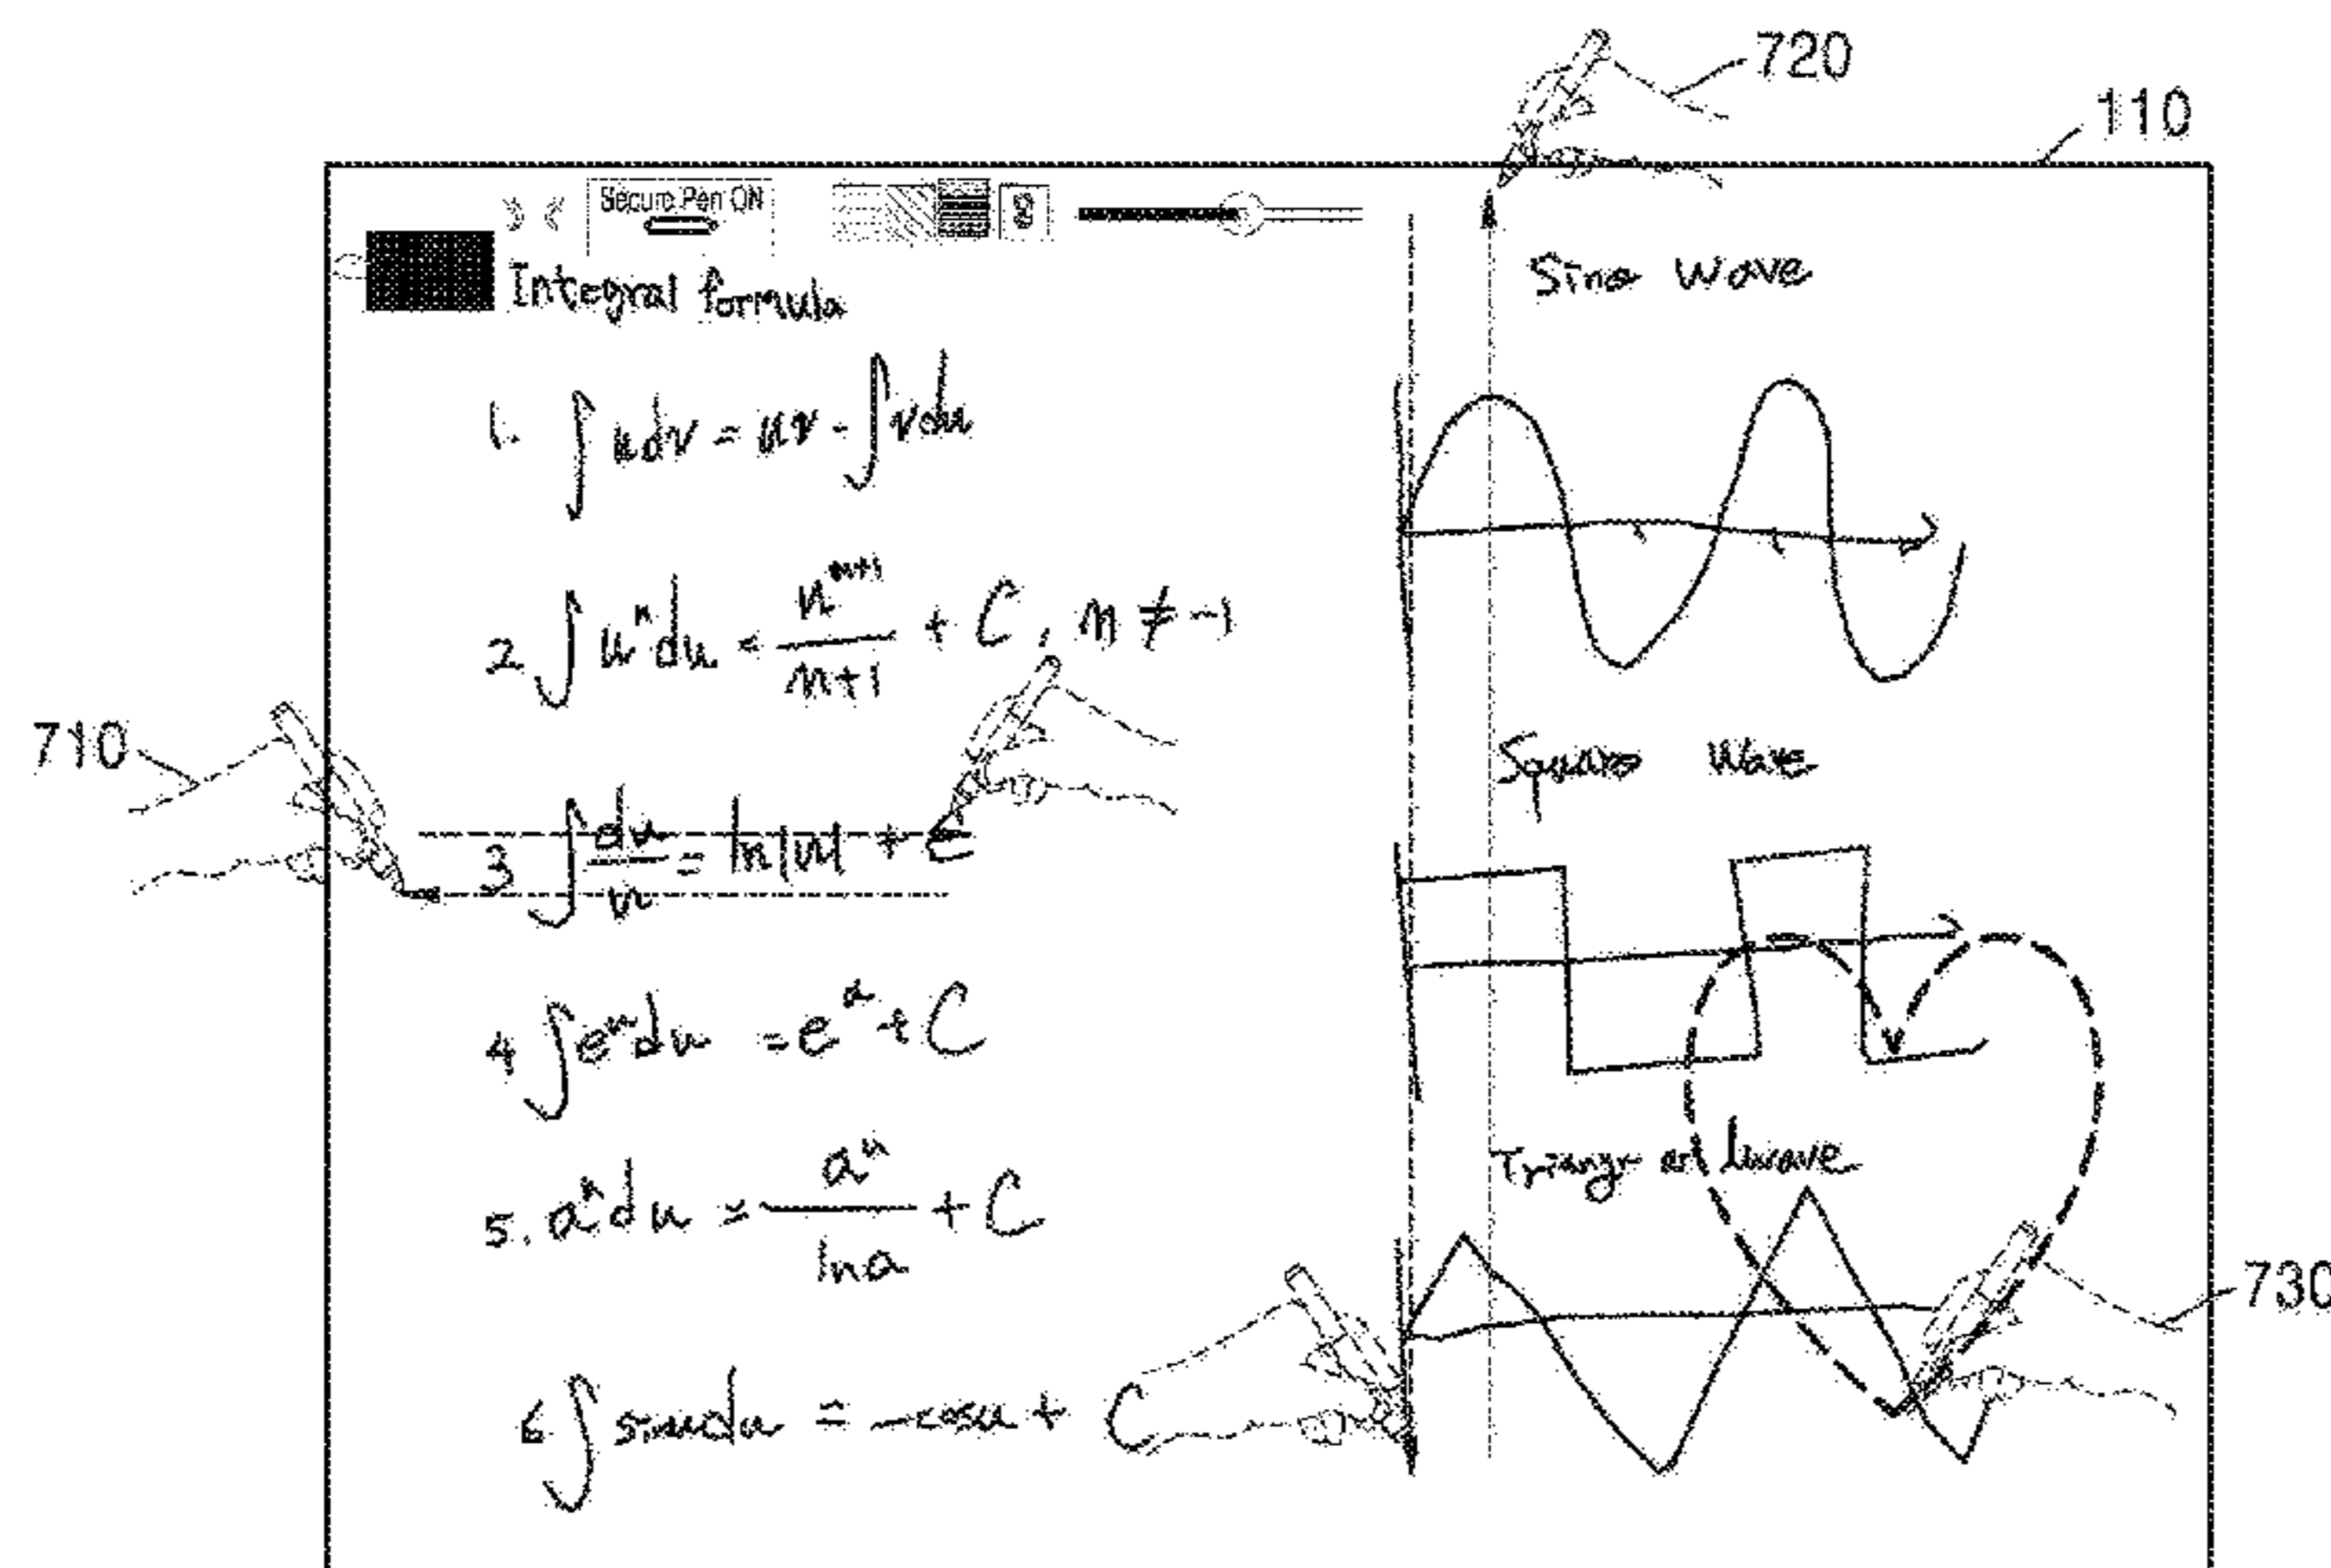 720
110
Secure Pen ON
Integral formula
1. ∫udv = uv - ∫vdu
2 ∫uⁿdu = uⁿ⁺¹/n+1 + C, n ≠ -1
710
3 ∫du/u = ln|u| + e
4 ∫eᵘdu = eᵘ + C
5. aᵘdu = aᵘ/lna + C
6 ∫sinudu = -cosu + C
Sine Wave
Square Wave
wave
730